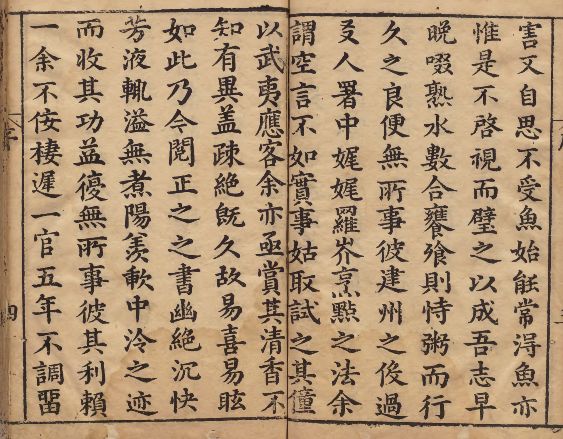 害又自思不受魚始能常淂魚亦
惟是不啓視而璧之以成吾志早
晚啜熟水數合饔飧則恃粥而行
久之良便無所事彼建州之役過
友人署中娓娓羅岕烹點之法余
謂空言不如實事姑取試之其僮
以武夷應客余亦亟賞其清香不
知有異盖疎絶既久故易喜易眩
如此乃今閱正之之書幽絶沉快
芳液輒溢無煮陽羨軟中泠之迹
而收其功益復無所事彼其利賴
一余不佞棲遲一官五年不調畱
四